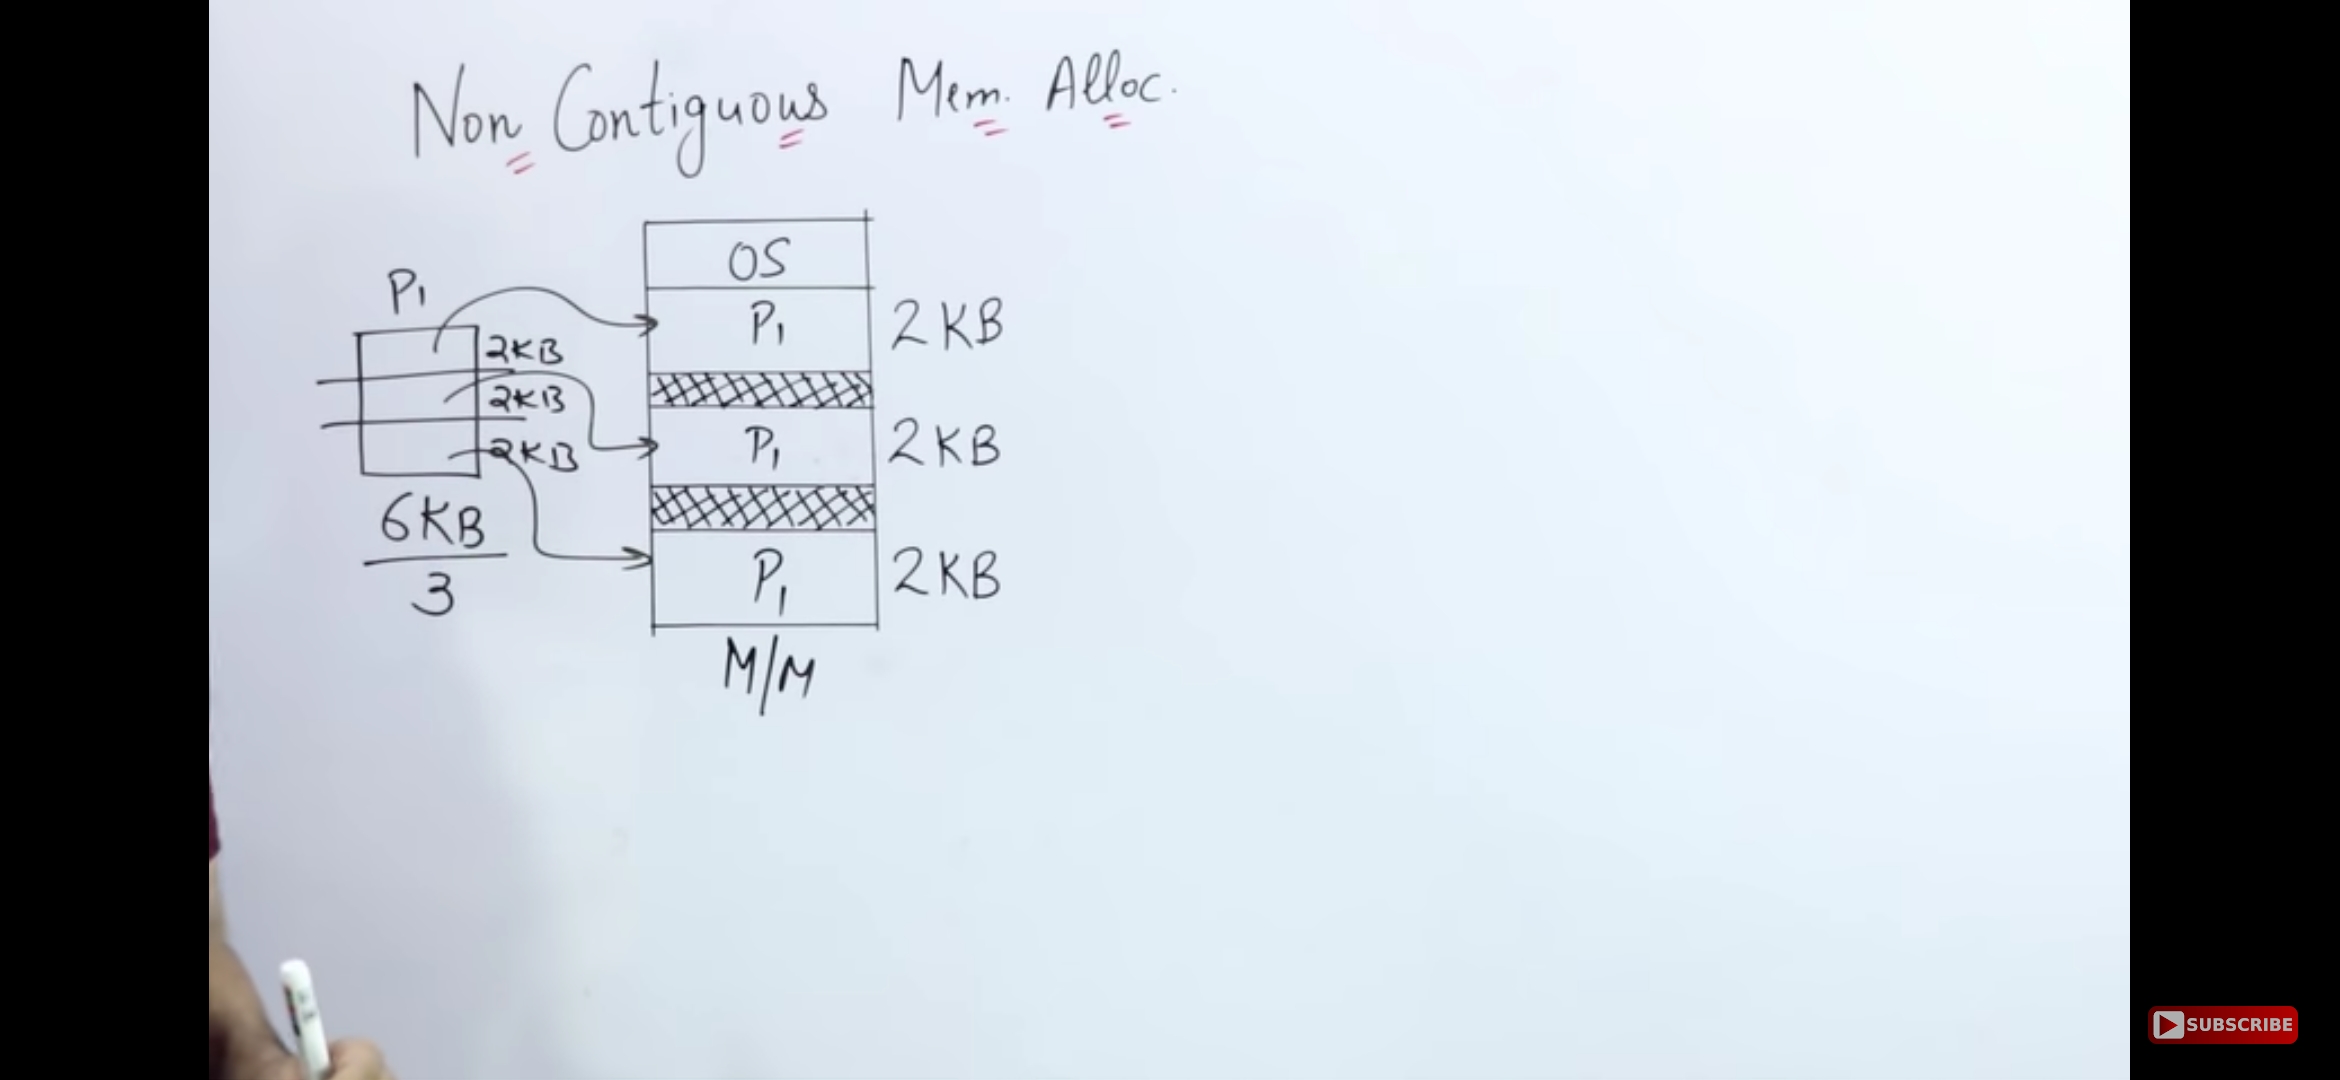 Non Contiguous Mem. Alloc.
OS
P1
P1
2KB
2KB
2KB
2KB
P1
2KB
6KB
3
P1
2KB
M/M
SUBSCRIBE